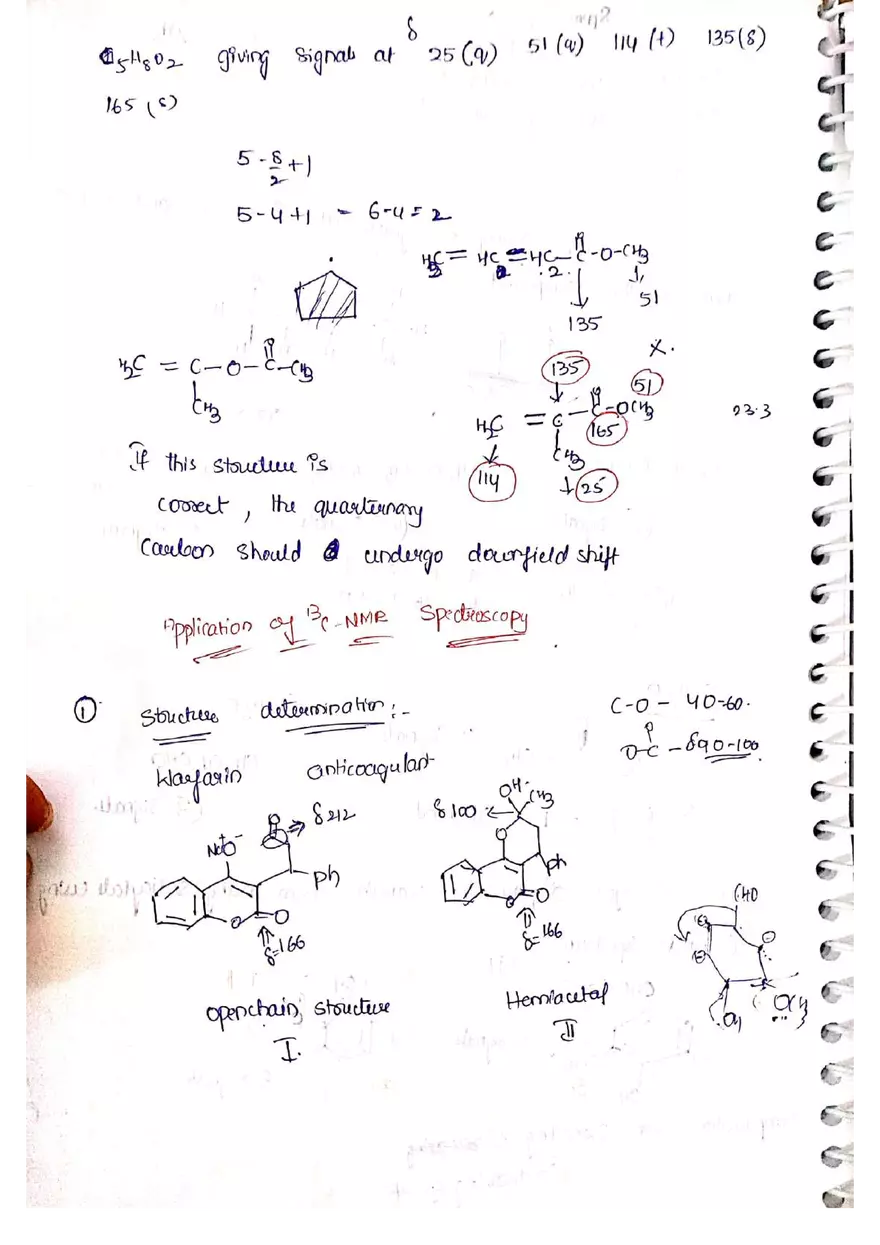 C5H8O2 giving signals at δ 25 (q) 51 (q) 114 (t) 135 (s)
165 (s)
5 - 8/2 + 1
5 - 4 + 1 - 6 - 4 = 2
H2C = HC = HC - C - O - CH3
2
51
135
X.
H2C = C - O - C - CH3
CH3
135
51
H2C = C - C - OCH3
165
23.3
CH3
114
25
If this structure is
correct, the quarternary
Carbon should undergo downfield shift
Application of 13C-NMR Spectroscopy
① Structure determination :-
C-O - 40-60.
O-C - δ 90-100
Warfarin anticoagulant
δ 212
Na+O-
Ph
O
O
δ=166
OH
CH3
δ 100
O
Ph
O
O
δ=166
CHO
OH
OH
Openchain structure
I.
Hemiacetal
II